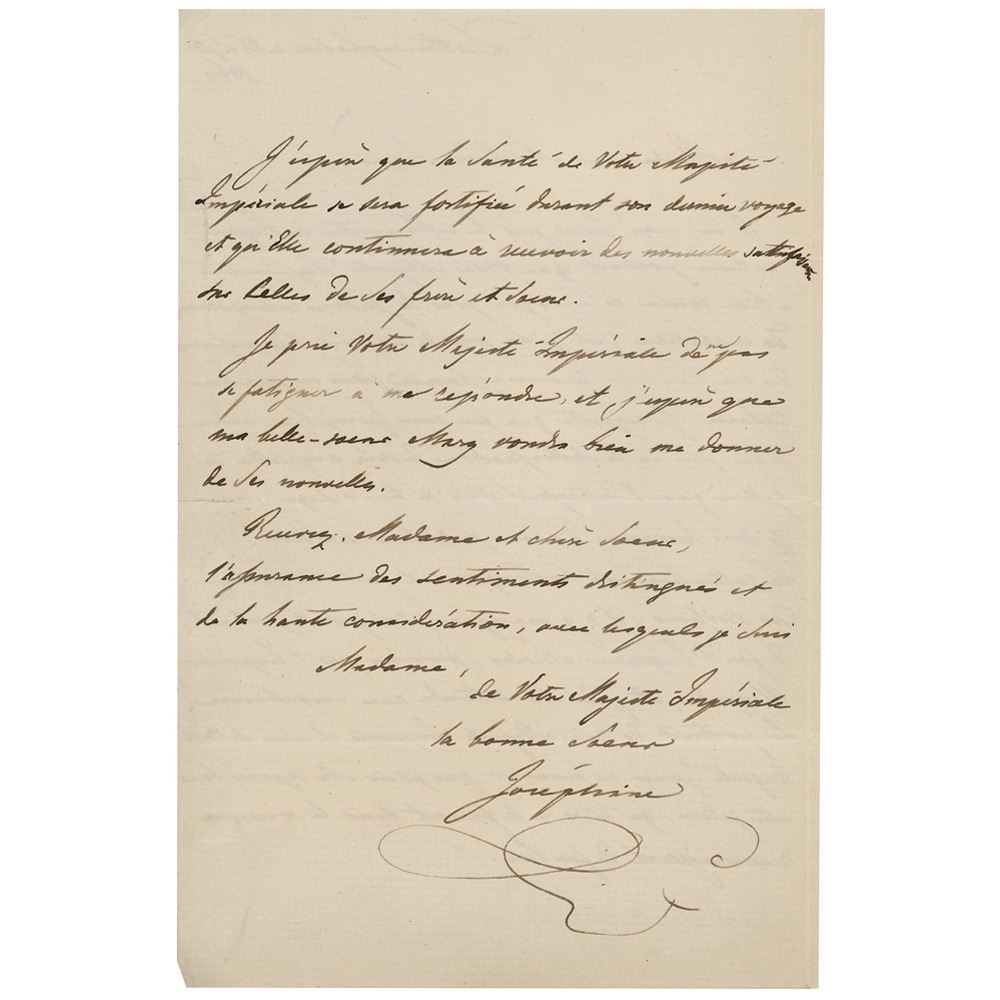 J'espère que la Santé de Votre Majesté
Impériale se sera fortifiée durant son dernier voyage
et qu'Elle continuera à recevoir des nouvelles satisfaisantes
sur Celles de Ses frère et Soeur.
Je prie Votre Majesté Impériale de ne pas
se fatiguer à me répondre, et j'espère que
ma belle-soeur Mary voudra bien me donner
de Ses nouvelles.
Recevez, Madame et chère Soeur,
l'assurance des sentiments distingués et
de la haute considération, avec lesquels je suis
Madame,
de Votre Majesté Impériale
la bonne Soeur
Joséphine